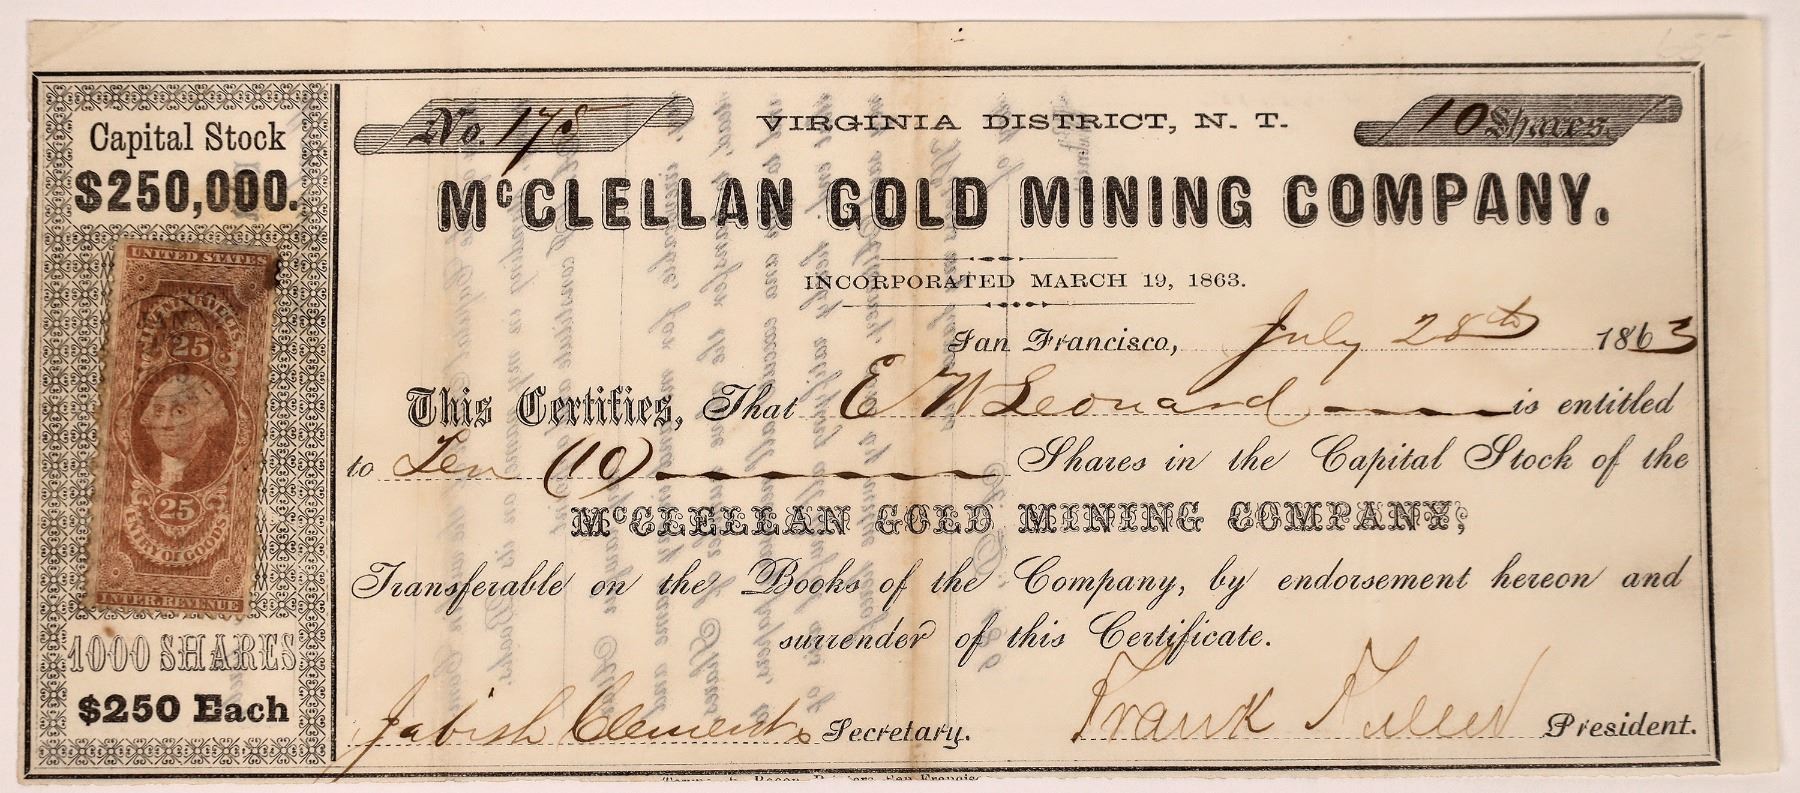 Capital Stock
$250,000.
UNITED STATES
25
25
ENTRY OF GOODS
INTER. REVENUE
1000 SHARES
$250 Each
No. 178
VIRGINIA DISTRICT, N. T.
10 Shares.
McCLELLAN GOLD MINING COMPANY.
INCORPORATED MARCH 19, 1863.
San Francisco, July 28th 1863
This Certifies, That E W Leonard is entitled
to Ten (10) Shares in the Capital Stock of the
McCLELLAN GOLD MINING COMPANY;
Transferable on the Books of the Company, by endorsement hereon and
surrender of this Certificate.
Jabish Clement Secretary.
Frank President.
Towne & Bacon, Printers, San Francisco